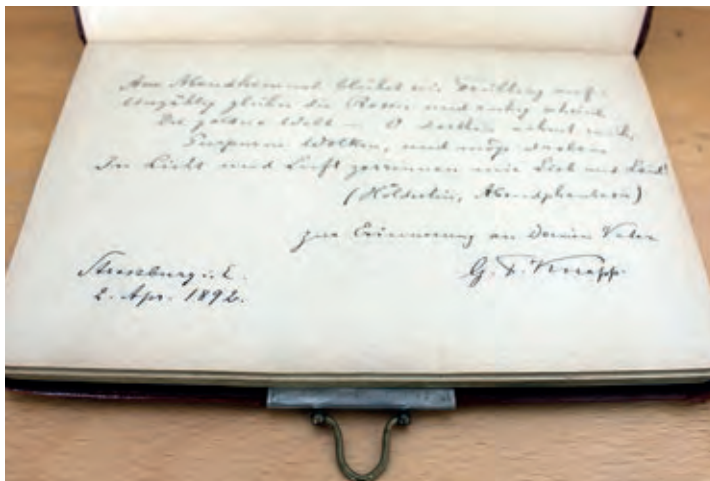 Am Abendhimmel blühet ein Frühling auf;
Unzählig glühn die Rosen und ruhig scheint
Die goldne Welt – O dorthin nehmt mich,
Purpurne Wolken, und möge droben
In Licht und Luft zerrinnen mir Lieb und Leid!
(Hölderlin, Abendphantasie)
zur Erinnerung an Deinen Vater
G. F. Knapp.
Strassburg i. E.
2. Apr. 1892.